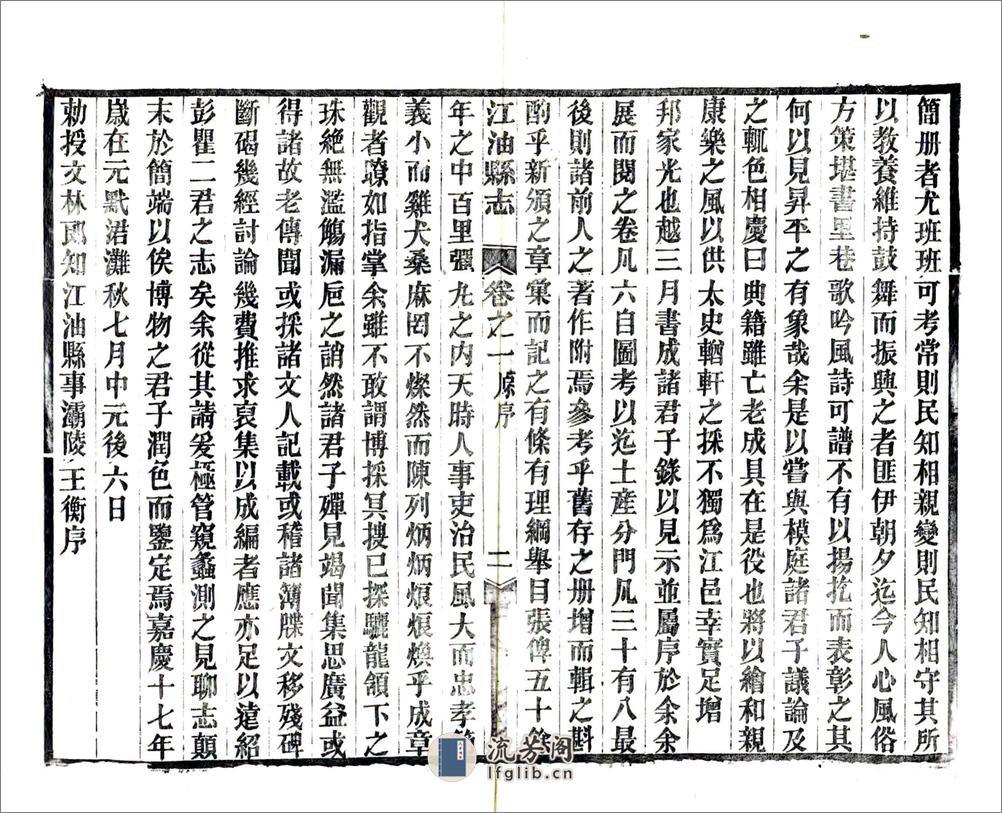 簡册者尤班班可考常則民知相親變則民知相守其所
以教養維持鼓舞而振興之者匪伊朝夕迄今人心風俗
方策堪書里巷歌吟風詩可譜不有以揚扢而表彰之其
何以見昇平之有象哉余是以嘗與模庭諸君子議論及
之輒色相慶曰典籍雖亡老成具在是役也將以繪和親
康樂之風以供太史輶軒之採不獨爲江邑幸實足增
邦家光也越三月書成諸君子錄以見示並屬序於余余
展而閱之卷凡六自圖考以迄土産分門凡三十有八最
後則諸前人之著作附焉參考乎舊存之册增而輯之斟
酌乎新頒之章彙而記之有條有理綱舉目張俾五十
江油縣志 卷之一 原序 二
年之中百里彊 之内天時人事吏治民風大而忠孝節
義小而雞犬桑麻罔不燦然而陳列炳炳烺烺煥乎成章
觀者瞭如指掌余雖不敢謂博採冥搜已探驪龍頷下之
珠絶無濫觴漏巵之誚然諸君子殫見竭聞集思廣益或
得諸故老傳聞或採諸文人記載或稽諸簿牒文移殘碑
斷碣幾經討論幾費推求裒集以成編者應亦足以遠紹
彭瞿二君之志矣余從其請爰極管窺蠡測之見聊志顛
末於簡端以俟博物之君子潤色而鑒定焉嘉慶十七年
歲在元黓涒灘秋七月中元後六日
勅授文林郎知江油縣事灞陵王衡序
流芳阁
lfglib.cn